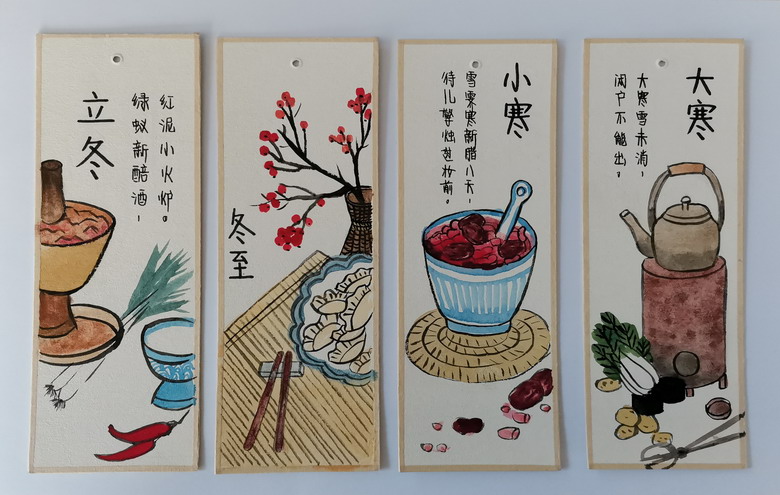 立冬
绿蚁新醅酒，
红泥小火炉。
冬至
小寒
雪霁寒新腊八天，
待儿擎烛赴妆前。
大寒
大寒雪未消，
闭户不能出。